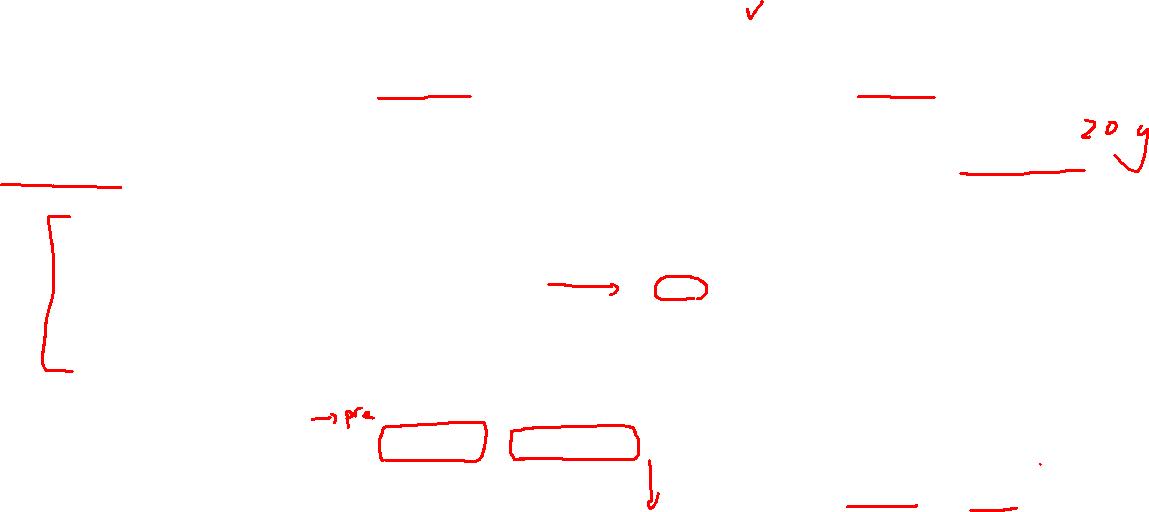 20 y
→ pre